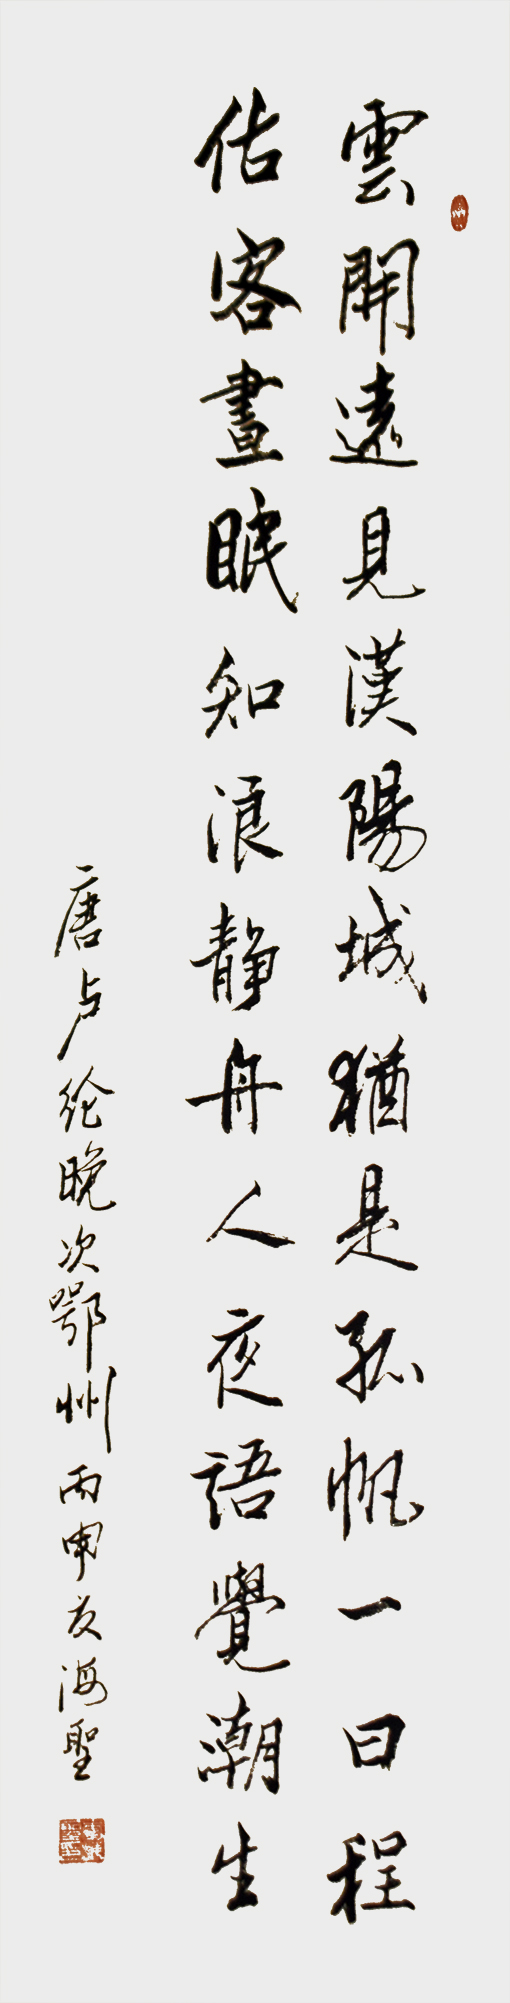 雲開遠見漢陽城猶是孤帆一日程
估客晝眠知浪靜舟人夜語覺潮生
唐卢纶晚次鄂州丙申夏海聖